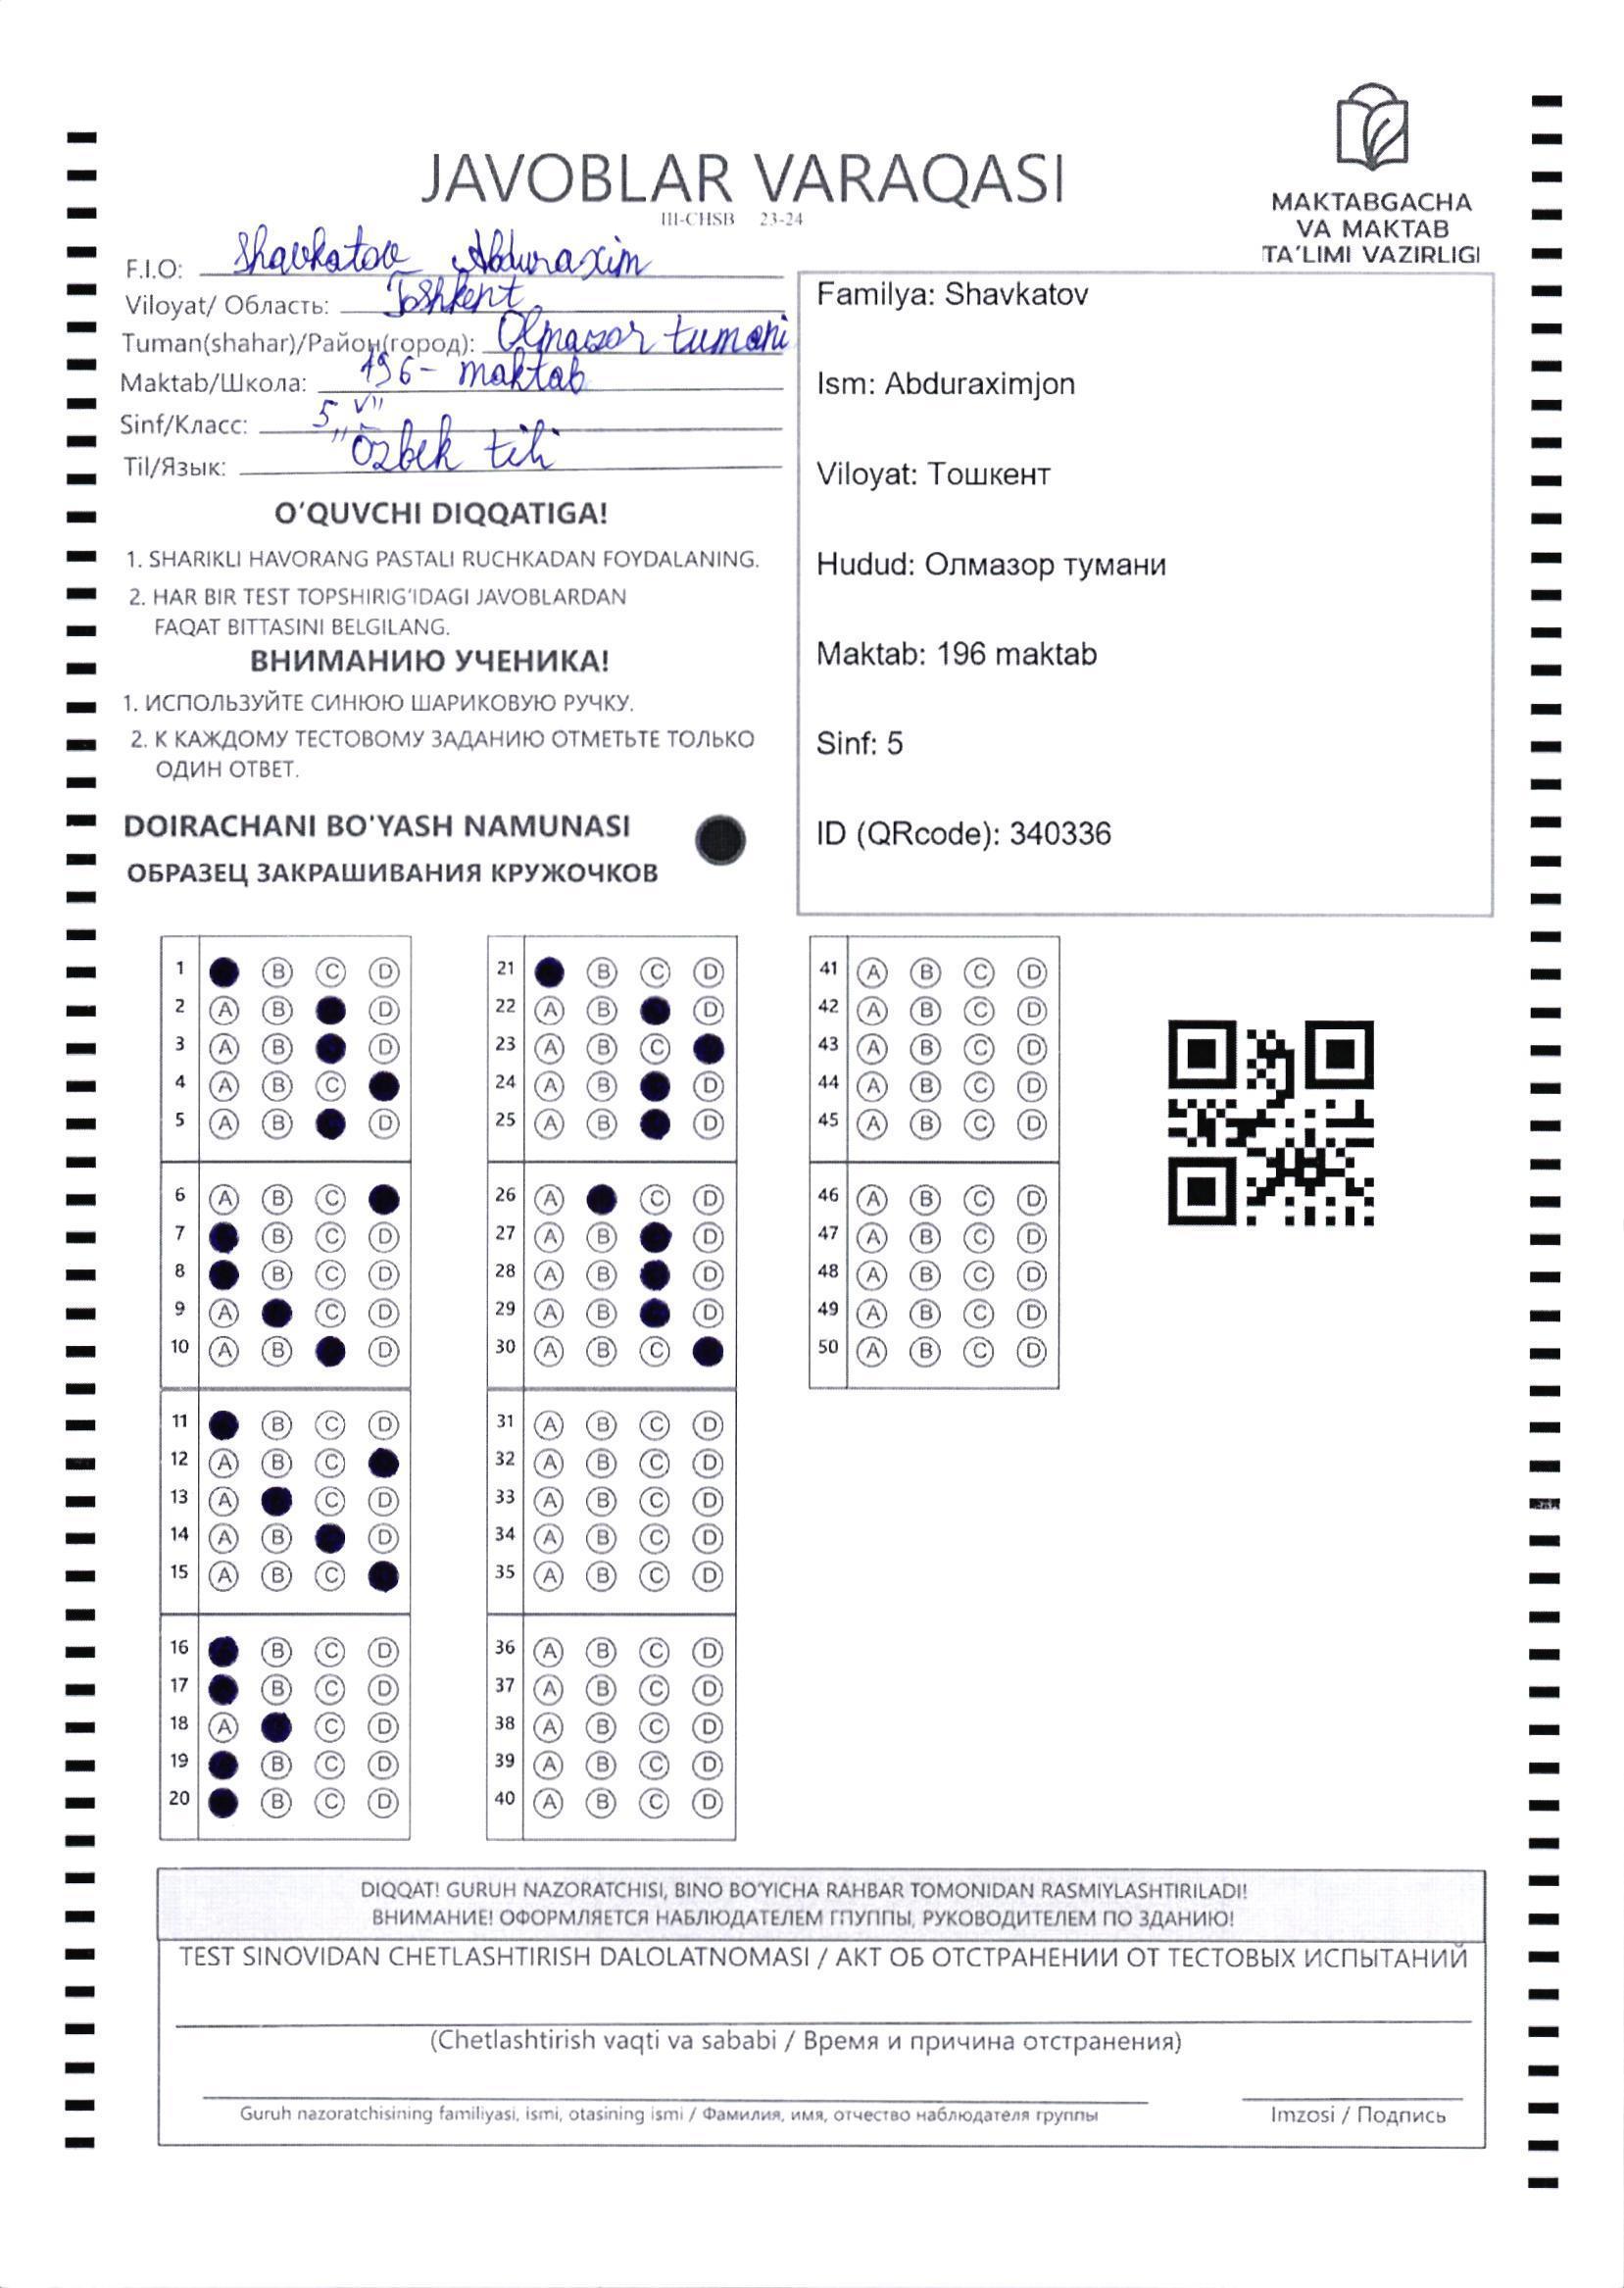 JAVOBLAR VARAQASI
III-CHSB 23-24
MAKTABGACHA
VA MAKTAB
TA'LIMI VAZIRLIGI
F.I.O: Shavkatov Abduraxim
Viloyat/ Область: Toshkent
Tuman(shahar)/Район(город): Olmazor tumani
Maktab/Школа: 196- maktab
Sinf/Класс: 5
Til/Язык: Özbek tili
O'QUVCHI DIQQATIGA!
1. SHARIKLI HAVORANG PASTALI RUCHKADAN FOYDALANING.
2. HAR BIR TEST TOPSHIRIG'IDAGI JAVOBLARDAN
FAQAT BITTASINI BELGILANG.
ВНИМАНИЮ УЧЕНИКА!
1. ИСПОЛЬЗУЙТЕ СИНЮЮ ШАРИКОВУЮ РУЧКУ.
2. К КАЖДОМУ ТЕСТОВОМУ ЗАДАНИЮ ОТМЕТЬТЕ ТОЛЬКО
ОДИН ОТВЕТ.
DOIRACHANI BO'YASH NAMUNASI
ОБРАЗЕЦ ЗАКРАШИВАНИЯ КРУЖОЧКОВ
Familya: Shavkatov
Ism: Abduraximjon
Viloyat: Тошкент
Hudud: Олмазор тумани
Maktab: 196 maktab
Sinf: 5
ID (QRcode): 340336
1 B C D
2 A B D
3 A B D
4 A B C
5 A B D
6 A B C
7 B C D
8 B C D
9 A C D
10 A B D
11 B C D
12 A B C
13 A C D
14 A B D
15 A B C
16 B C D
17 B C D
18 A C D
19 B C D
20 B C D
21 B C D
22 A B D
23 A B C
24 A B D
25 A B D
26 A C D
27 A B D
28 A B D
29 A B D
30 A B C
31 A B C D
32 A B C D
33 A B C D
34 A B C D
35 A B C D
36 A B C D
37 A B C D
38 A B C D
39 A B C D
40 A B C D
41 A B C D
42 A B C D
43 A B C D
44 A B C D
45 A B C D
46 A B C D
47 A B C D
48 A B C D
49 A B C D
50 A B C D
DIQQAT! GURUH NAZORATCHISI, BINO BO'YICHA RAHBAR TOMONIDAN RASMIYLASHTIRILADI!
ВНИМАНИЕ! ОФОРМЛЯЕТСЯ НАБЛЮДАТЕЛЕМ ГПУППЫ, РУКОВОДИТЕЛЕМ ПО ЗДАНИЮ!
TEST SINOVIDAN CHETLASHTIRISH DALOLATNOMASI / АКТ ОБ ОТСТРАНЕНИИ ОТ ТЕСТОВЫХ ИСПЫТАНИЙ
(Chetlashtirish vaqti va sababi / Время и причина отстранения)
Guruh nazoratchisining familiyasi, ismi, otasining ismi / Фамилия, имя, отчество наблюдателя группы
Imzosi / Подпись